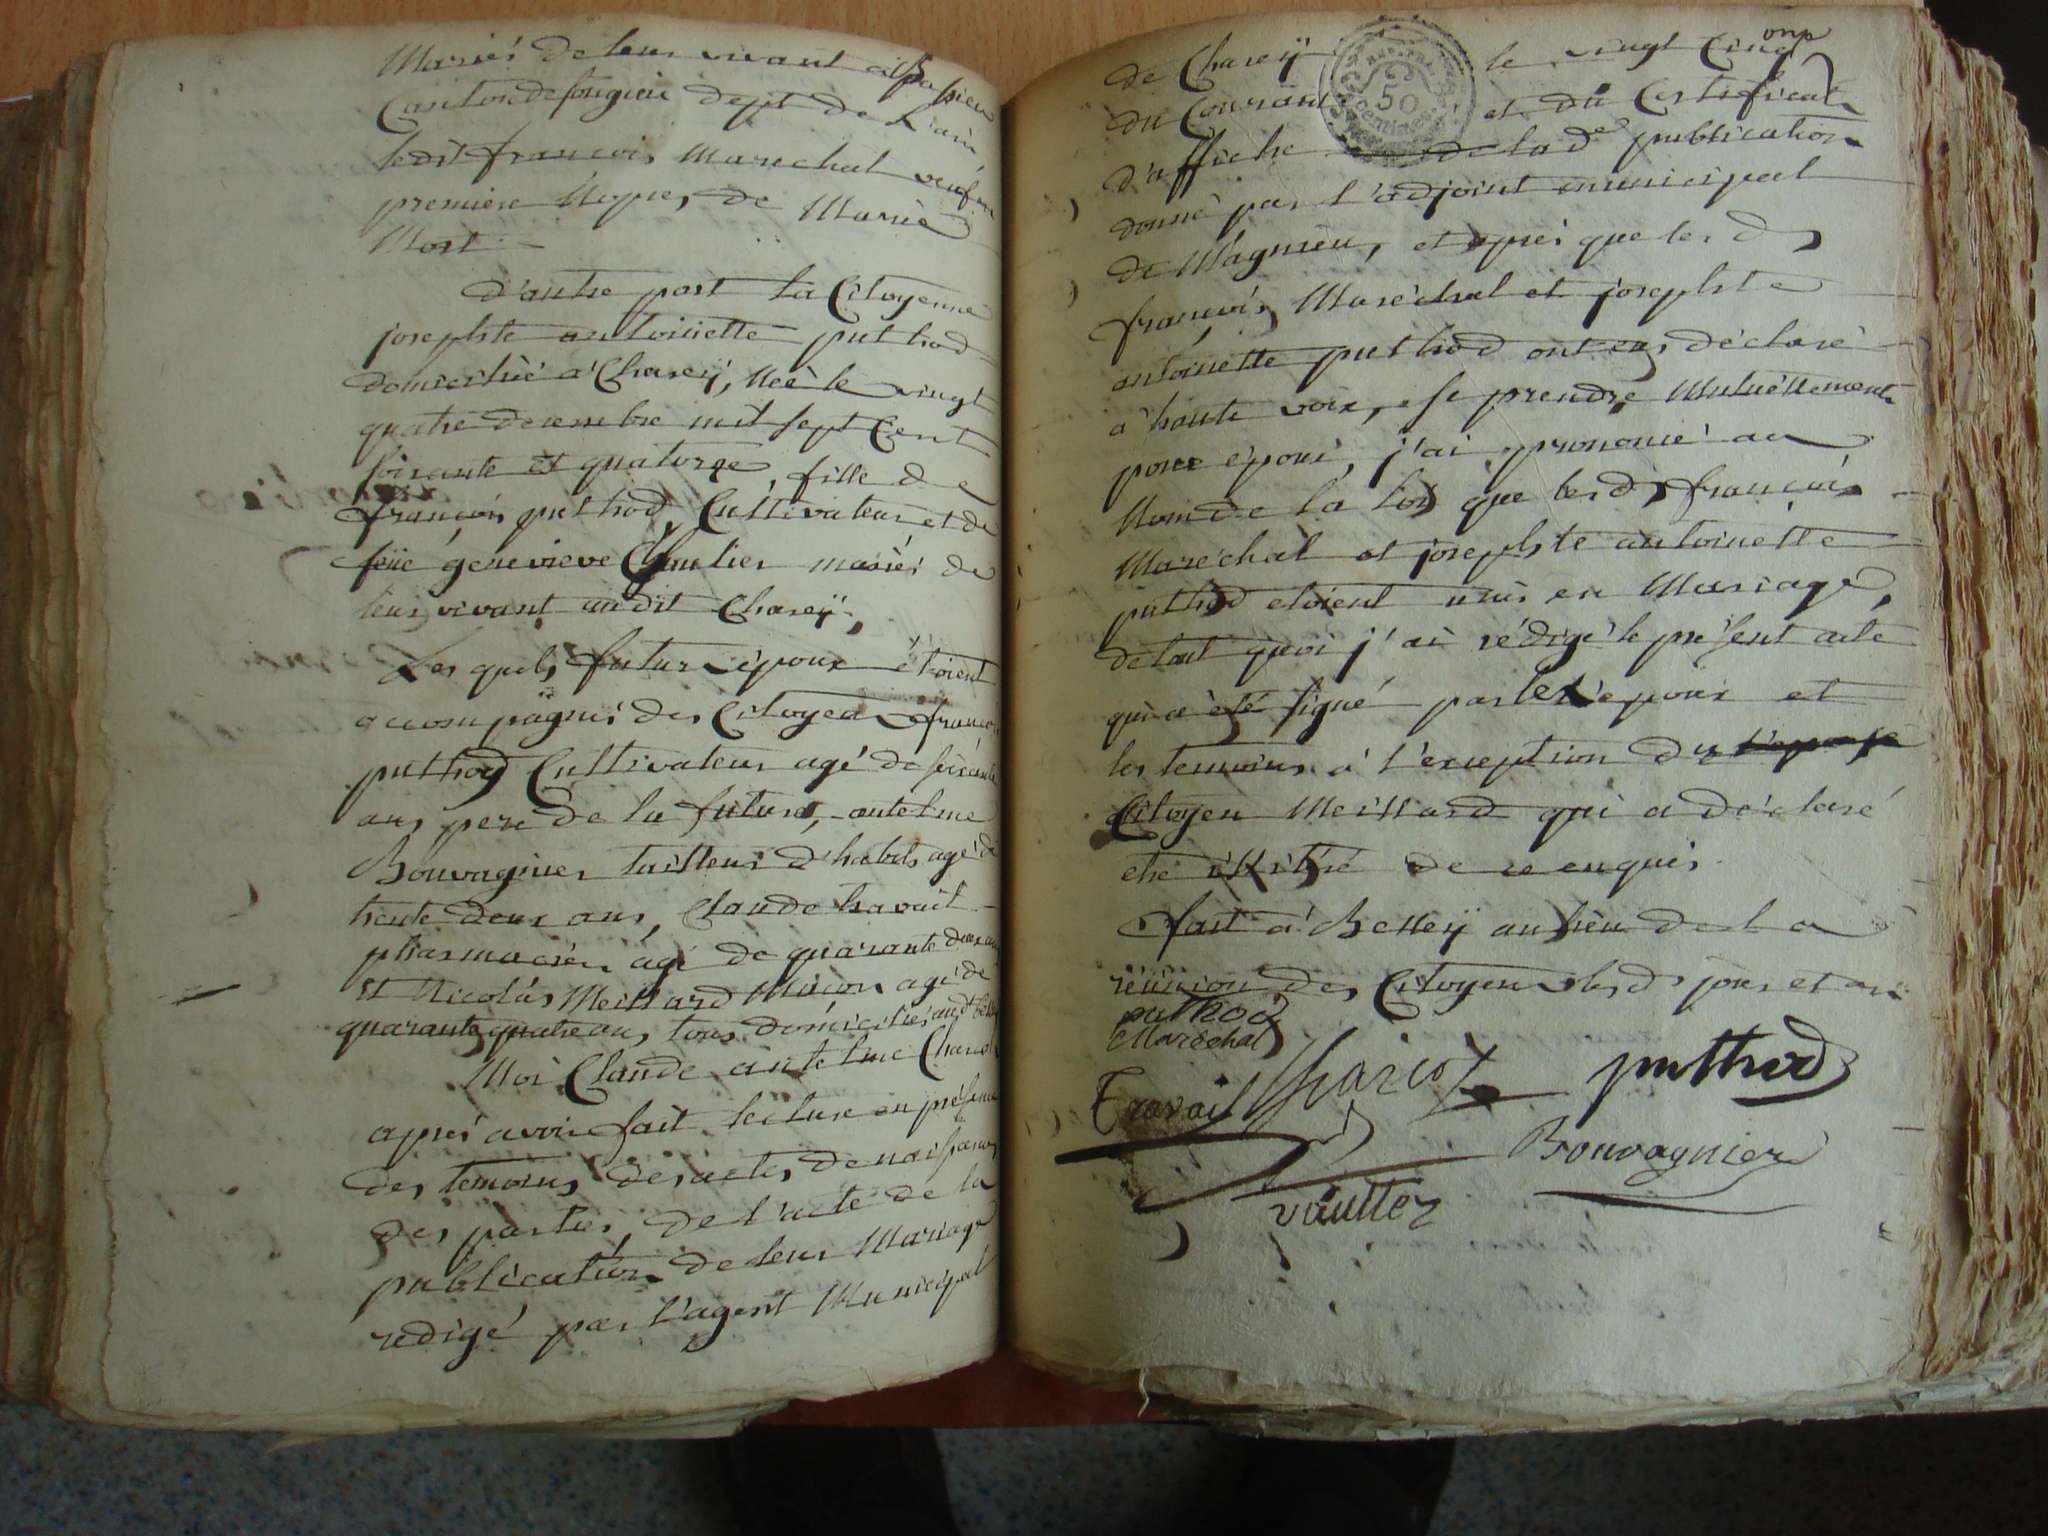 Mariés de leur vivant à
Canton de sougieu dept de L'ain
ledit françois Marechal veuf en
premiere Nopces de Marie
Mort
D'autre part la Citoyenne
josephte antoinette puthod
domiciliée à Chazeÿ, Née le vingt
quatre decembre mil sept Cent
soixante et quatorze, fille de
françois puthod, Cultivateur et de
feüe génevieve Chaulier mariés de
leur vivant audit Chazeÿ,
Les quels futur époux étoient
accompagnés des Citoyens françois
puthod Cultivateur agé de soixante
ans pere de la future, antelme
Bouvagnier tailleur d'habits agé de
trente deux ans, Claude travail
pharmacien agé de quarante deux ans
et Nicolas Meillard Maçon agé de
quarante quatre ans, tous domiciliés aud. Belley
Moi Claude antelme
après avoir fait lecture en présence
des temoins des actes de naissance
des parties, de l'acte de la
publication de leur Mariage
redigé par l'agent Municipal
de Chazeÿ le vingt Cinq
du Courant et du Certificat
d'affiche de la de publication
donné par l'adjoint municipal
de Magnieu, et après que les ds
françois Maréchal et josephte
antoinette puthod ont eus déclaré
à haute voix, se prendre Mutuellement
pour époux, j'ai prononcé au
Nom de la loi que lesds françois
Maréchal et josephte antoinette
puthod etoient unis en Mariage,
de tout quoi j'ai rédigé le présent acte
qui a été signé par les époux et
les temoins à l'exception du l'épouse
Citoyen Meillard qui a déclaré
etre illitéré de ce enquis.
fait à Belleÿ au lieu de la
réünion des Citoyens lesds jour et an
puthod
Maréchal
Travail puthod
Bouvagnier
vaultez
50
centimes